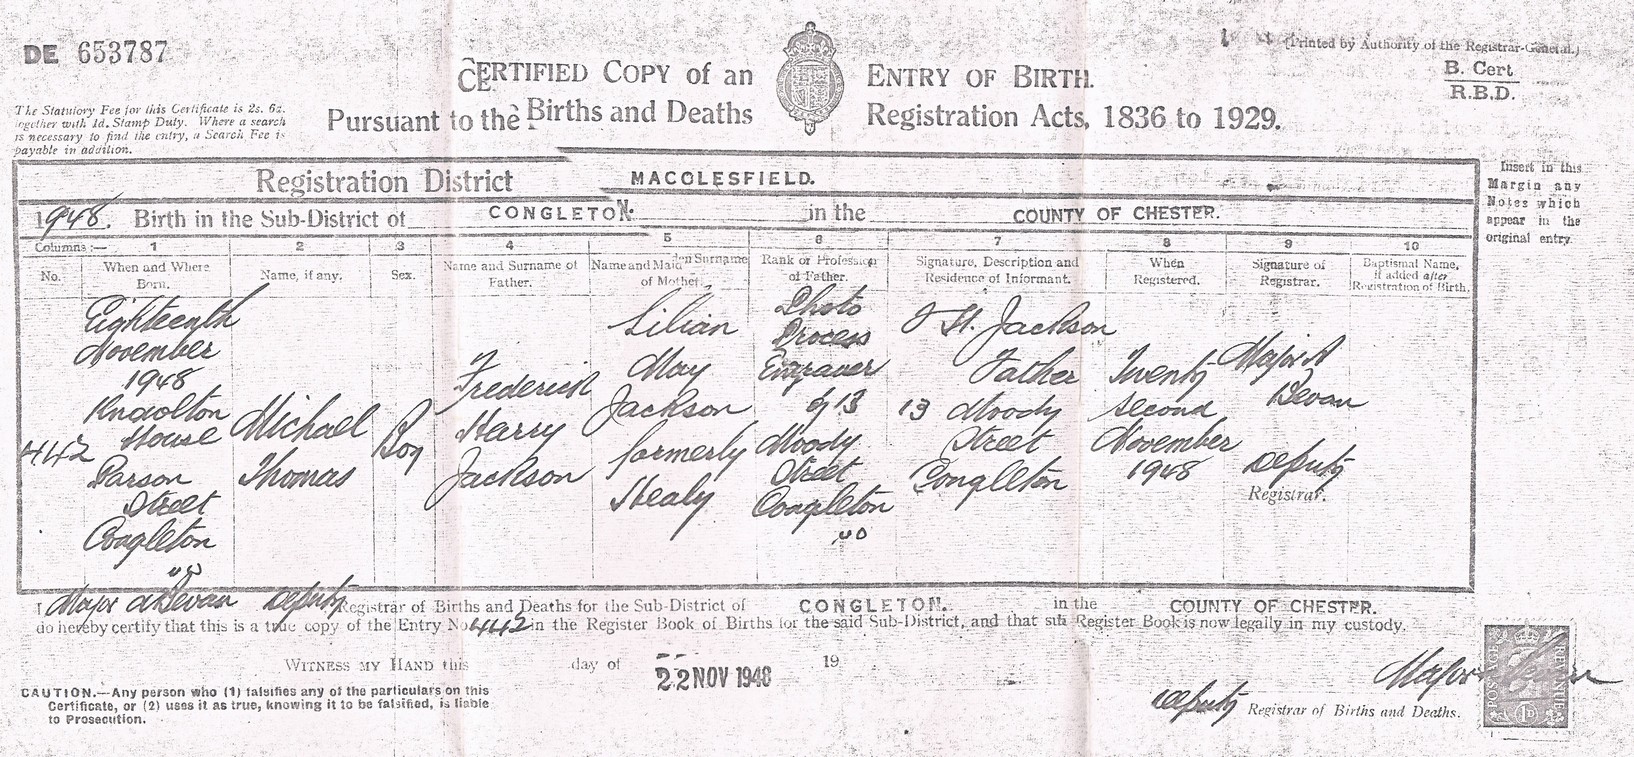 DE 653787
(Printed by Authority of the Registrar-General.)
B. Cert
R.B.D.
CERTIFIED COPY of an ENTRY OF BIRTH.
Pursuant to the Births and Deaths Registration Acts, 1836 to 1929.
The Statutory Fee for this Certificate is 2s. 6d.
together with 1d. Stamp Duty. Where a search
is necessary to find the entry, a Search Fee is
payable in addition.
Registration District MACCLESFIELD.
1948. Birth in the Sub-District of CONGLETON. in the COUNTY OF CHESTER.
Insert in this
Margin any
Notes which
appear in the
original entry.
Columns :— 1 2 3 4 5 6 7 8 9 10
No.
When and Where
Born.
Name, if any.
Sex.
Name and Surname of
Father.
Name and Maiden Surname
of Mother.
Rank or Profession
of Father.
Signature, Description and
Residence of Informant.
When
Registered.
Signature of
Registrar.
Baptismal Name,
if added after
Registration of Birth.
442
Eighteenth
November
1948
Knowlton
House
Parson
Street
Congleton
UD
Michael
Thomas
Boy
Frederick
Harry
Jackson
Lilian
May
Jackson
formerly
Healy
Photo
Process
Engraver
of 13
Moody
Street
Congleton
UD
F H. Jackson
Father
13 Moody
Street
Congleton
Twenty
second
November
1948
Major A
Bevan
Deputy
Registrar.
I Major A Bevan Deputy Registrar of Births and Deaths for the Sub-District of CONGLETON. in the COUNTY OF CHESTER.
do hereby certify that this is a true copy of the Entry No 442 in the Register Book of Births for the said Sub-District, and that such Register Book is now legally in my custody.
WITNESS MY HAND this day of 22 NOV 1948 19
CAUTION.—Any person who (1) falsifies any of the particulars on this
Certificate, or (2) uses it as true, knowing it to be falsified, is liable
to Prosecution.
Major Bevan
Deputy Registrar of Births and Deaths.
POSTAGE
REVENUE
1D